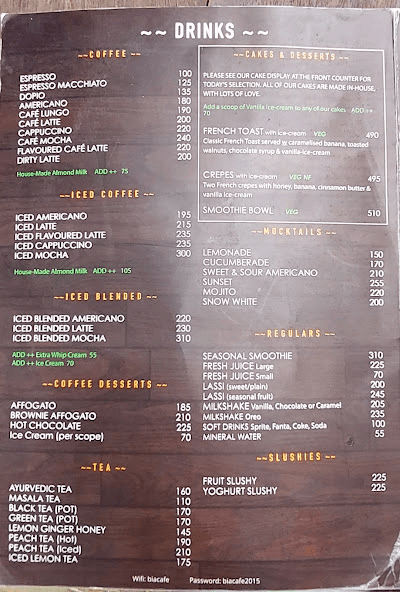 ~~ DRINKS ~~
~~COFFEE~~
ESPRESSO 100
ESPRESSO MACCHIATO 125
DOPIO 135
AMERICANO 180
CAFÉ LUNGO 190
CAFÉ LATTE 200
CAPPUCCINO 220
CAFÉ MOCHA 240
FLAVOURED CAFÉ LATTE 220
DIRTY LATTE 200
House-Made Almond Milk ADD ++ 75
~~ICED COFFEE~~
ICED AMERICANO 195
ICED LATTE 215
ICED FLAVOURED LATTE 235
ICED CAPPUCCINO 235
ICED MOCHA 300
House-Made Almond Milk ADD ++ 105
~~ICED BLENDED~~
ICED BLENDED AMERICANO 220
ICED BLENDED LATTE 230
ICED BLENDED MOCHA 310
ADD ++ Extra Whip Cream 55
ADD ++ Ice Cream 70
~~COFFEE DESSERTS~~
AFFOGATO 185
BROWNIE AFFOGATO 210
HOT CHOCOLATE 225
Ice Cream (per scope) 70
~~TEA~~
AYURVEDIC TEA 160
MASALA TEA 110
BLACK TEA (POT) 170
GREEN TEA (POT) 170
LEMON GINGER HONEY 145
PEACH TEA (Hot) 190
PEACH TEA (Iced) 210
ICED LEMON TEA 175
~~CAKES & DESSERTS~~
PLEASE SEE OUR CAKE DISPLAY AT THE FRONT COUNTER FOR
TODAY'S SELECTION. ALL OF OUR CAKES ARE MADE IN-HOUSE,
WITH LOTS OF LOVE.
Add a scoop of Vanilla Ice-cream to any of our cakes ADD ++
70
FRENCH TOAST with ice-cream VEG 490
Classic French Toast served w caramelised banana, toasted
walnuts, chocolate syrup & vanilla-ice-cream
CREPES with ice-cream VEG NF 495
Two French crepes with honey, banana, cinnamon butter &
vanilla ice-cream
SMOOTHIE BOWL VEG 510
~~MOCKTAILS~~
LEMONADE 150
CUCUMBERADE 170
SWEET & SOUR AMERICANO 210
SUNSET 255
MOJITO 220
SNOW WHITE 200
~~REGULARS~~
SEASONAL SMOOTHIE 310
FRESH JUICE Large 225
FRESH JUICE Small 70
LASSI (sweet/plain) 200
LASSI (seasonal fruit) 245
MILKSHAKE Vanilla, Chocolate or Caramel 205
MILKSHAKE Oreo 235
SOFT DRINKS Sprite, Fanta, Coke, Soda 100
MINERAL WATER 55
~~SLUSHIES~~
FRUIT SLUSHY 225
YOGHURT SLUSHY 225
Wifi: biacafe Password: biacafe2015